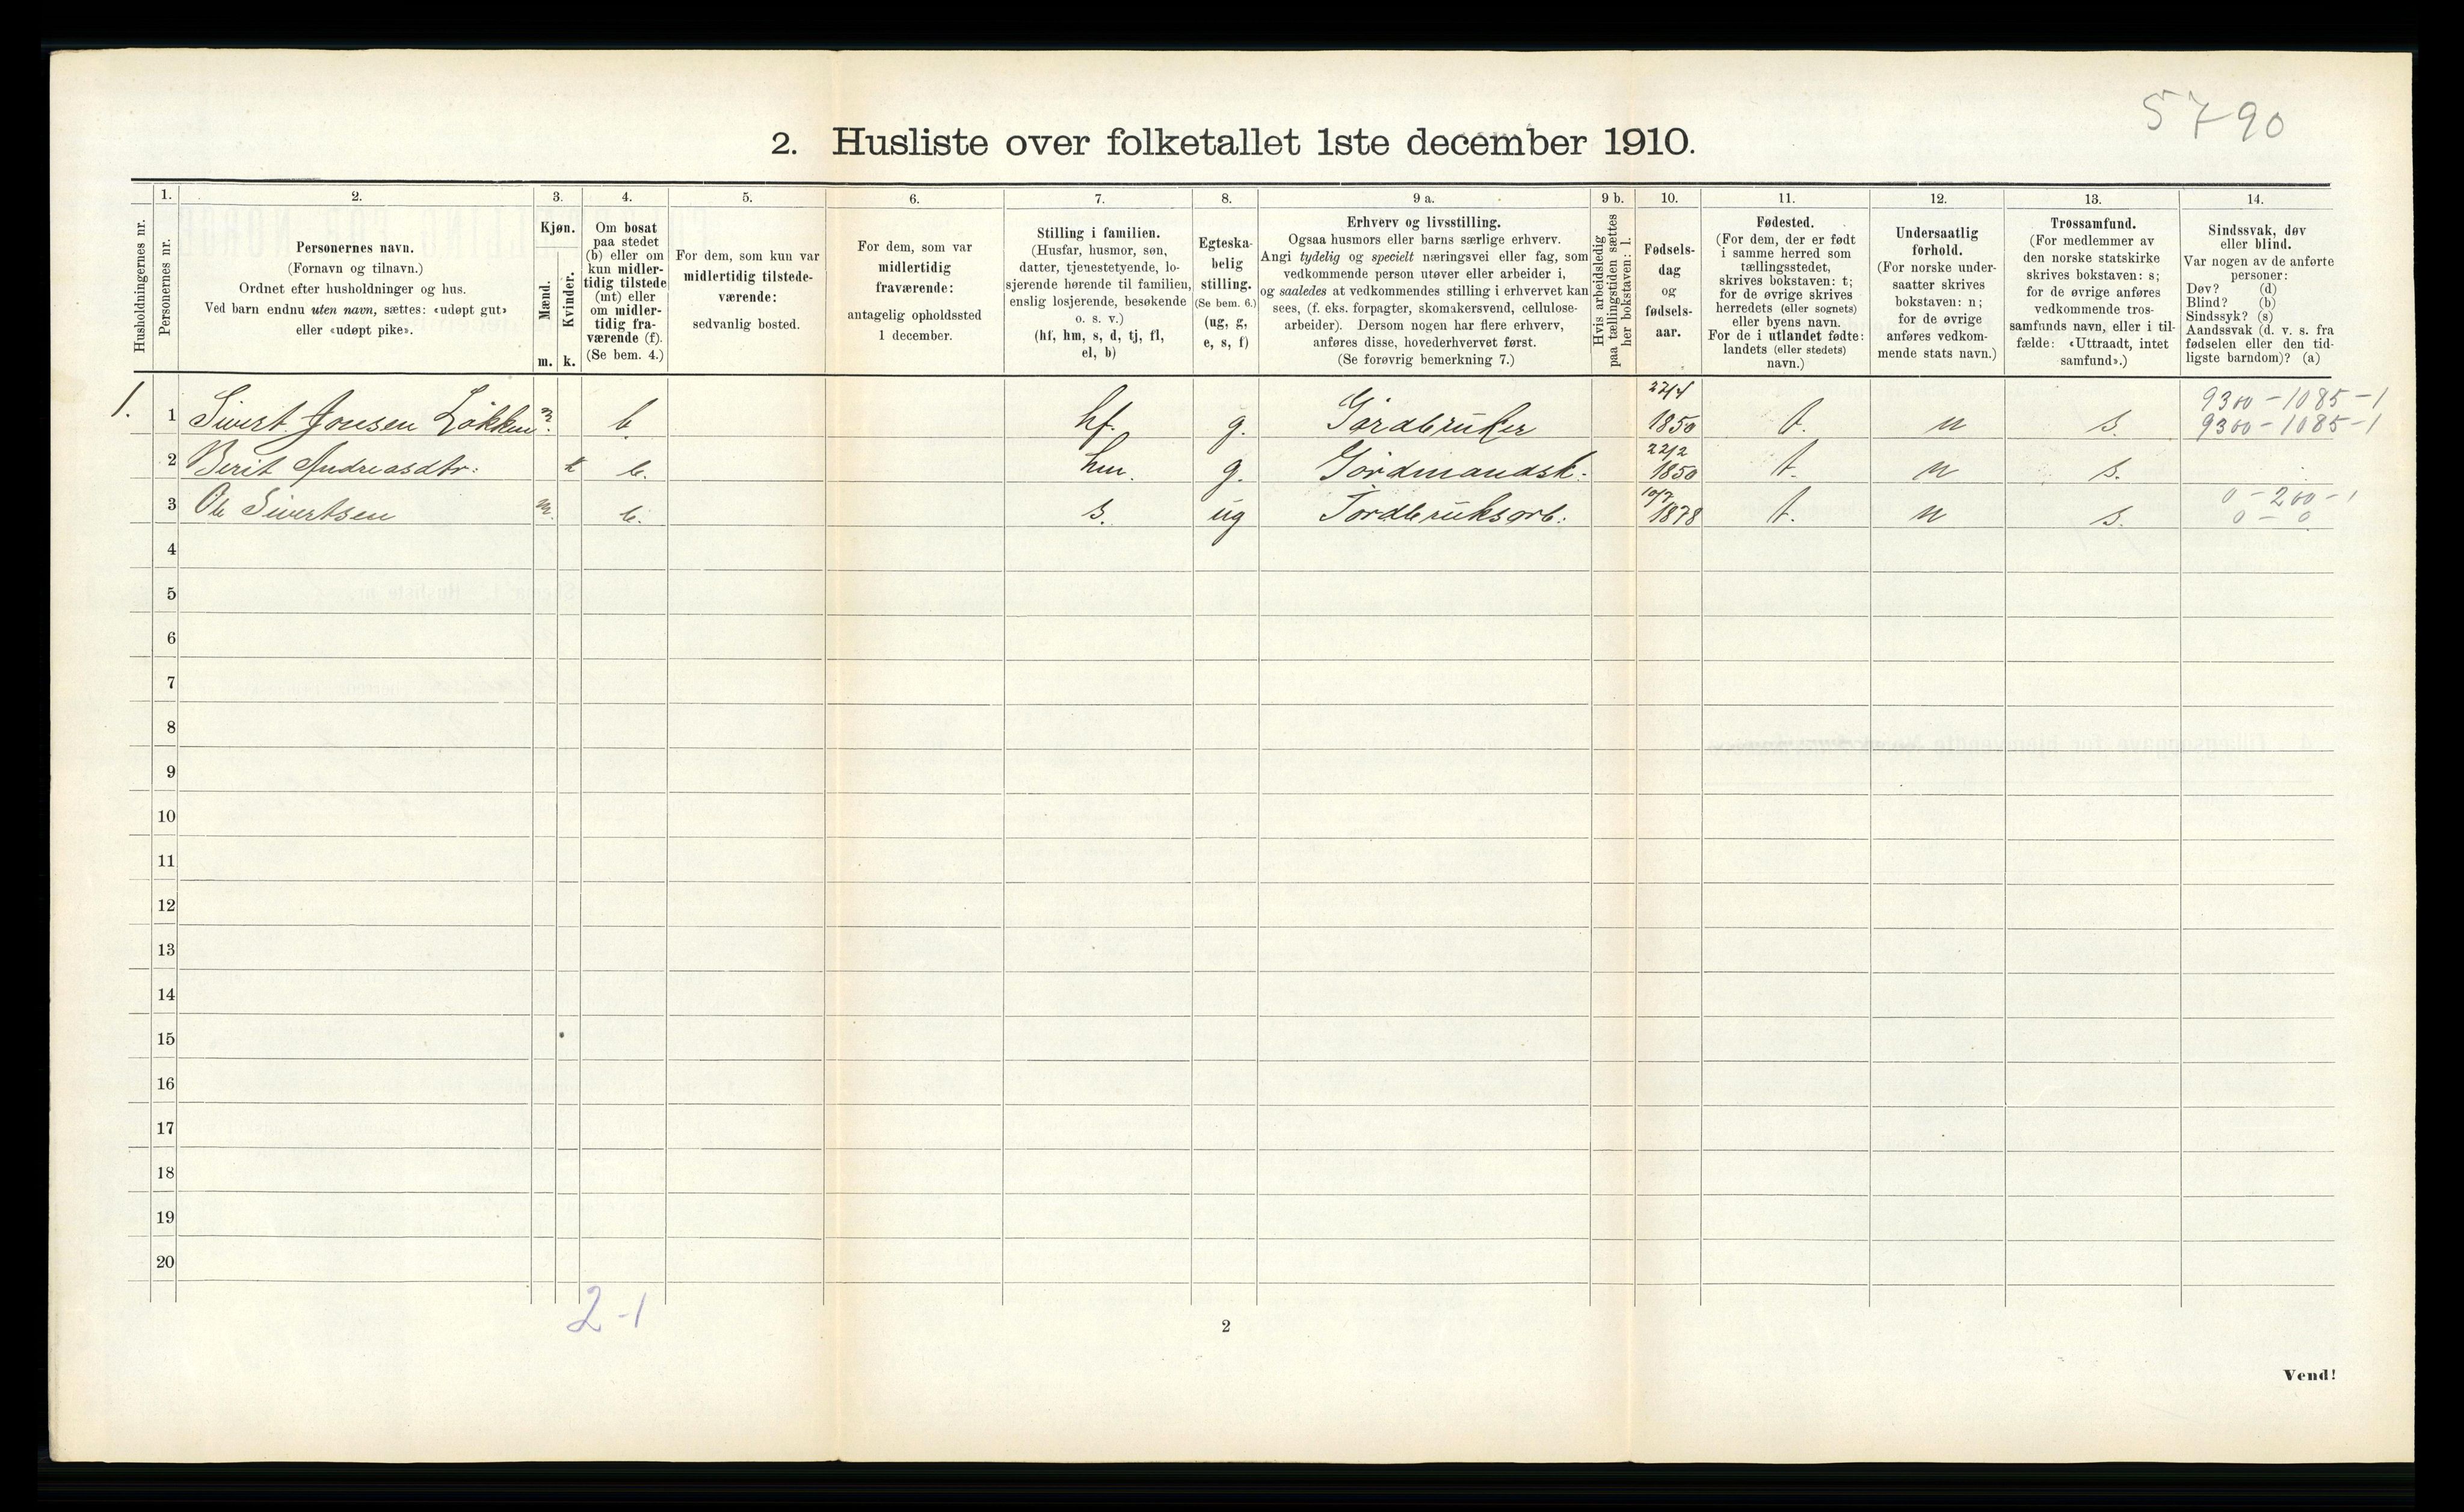 5790
2. Husliste over folketallet 1ste december 1910.
Husholdningernes nr.
1.
Personernes nr.
2.
Personernes navn.
(Fornavn og tilnavn.)
Ordnet efter husholdninger og hus.
Ved barn endnu uten navn, sættes: «udøpt gut»
eller «udøpt pike».
3.
Kjøn.
Mænd.
m.
Kvinder.
k.
4.
Om bosat
paa stedet
(b) eller om
kun midler-
tidig tilstede
(mt) eller
om midler-
tidig fra-
værende (f).
(Se bem. 4.)
5.
For dem, som kun var
midlertidig tilstede-
værende:
sedvanlig bosted.
6.
For dem, som var
midlertidig
fraværende:
antagelig opholdssted
1 december.
7.
Stilling i familien.
(Husfar, husmor, søn,
datter, tjenestetyende, lo-
sjerende hørende til familien,
enslig losjerende, besøkende
o. s. v.)
(hf, hm, s, d, tj, fl,
el, b)
8.
Egteska-
belig
stilling.
(Se bem. 6.)
(ug, g,
e, s, f)
9 a.
Erhverv og livsstilling.
Ogsaa husmors eller barns særlige erhverv.
Angi tydelig og specielt næringsvei eller fag, som
vedkommende person utøver eller arbeider i,
og saaledes at vedkommendes stilling i erhvervet kan
sees, (f. eks. forpagter, skomakersvend, cellulose-
arbeider). Dersom nogen har flere erhverv,
anføres disse, hovederhvervet først.
(Se forøvrig bemerkning 7.)
9 b.
Hvis arbeidsledig
paa tællingstiden sættes
her bokstaven: l.
10.
Fødsels-
dag
og
fødsels-
aar.
11.
Fødested.
(For dem, der er født
i samme herred som
tællingsstedet,
skrives bokstaven: t;
for de øvrige skrives
herredets (eller sognets)
eller byens navn.
For de i utlandet fødte:
landets (eller stedets)
navn.)
12.
Undersaatlig
forhold.
(For norske under-
saatter skrives
bokstaven: n;
for de øvrige
anføres vedkom-
mende stats navn.)
13.
Trossamfund.
(For medlemmer av
den norske statskirke
skrives bokstaven: s;
for de øvrige anføres
vedkommende tros-
samfunds navn, eller i til-
fælde: «Uttraadt, intet
samfund».)
14.
Sindssvak, døv
eller blind.
Var nogen av de anførte
personer:
Døv? (d)
Blind? (b)
Sindssyk? (s)
Aandssvak (d. v. s. fra
fødselen eller den tid-
ligste barndom)? (a)
1. 1 Sivert Jonsen Løkken m. b. hf. g. Gårdbruker 1850 t. n s. 9300-1085-1
9300-1085-1
2 Berit Andreasdtr: k b. hm. g. Gårdmandsk. 22/2 1850 t. n s.
3 Ole Sivertsen m. b. s. ug Jordbruksarb: 10/7 1878 t. n s. 0-200-1
0-0
4
5
6
7
8
9
10
11
12
13
14
15
16
17
18
19
20
2-1
2
Vend!